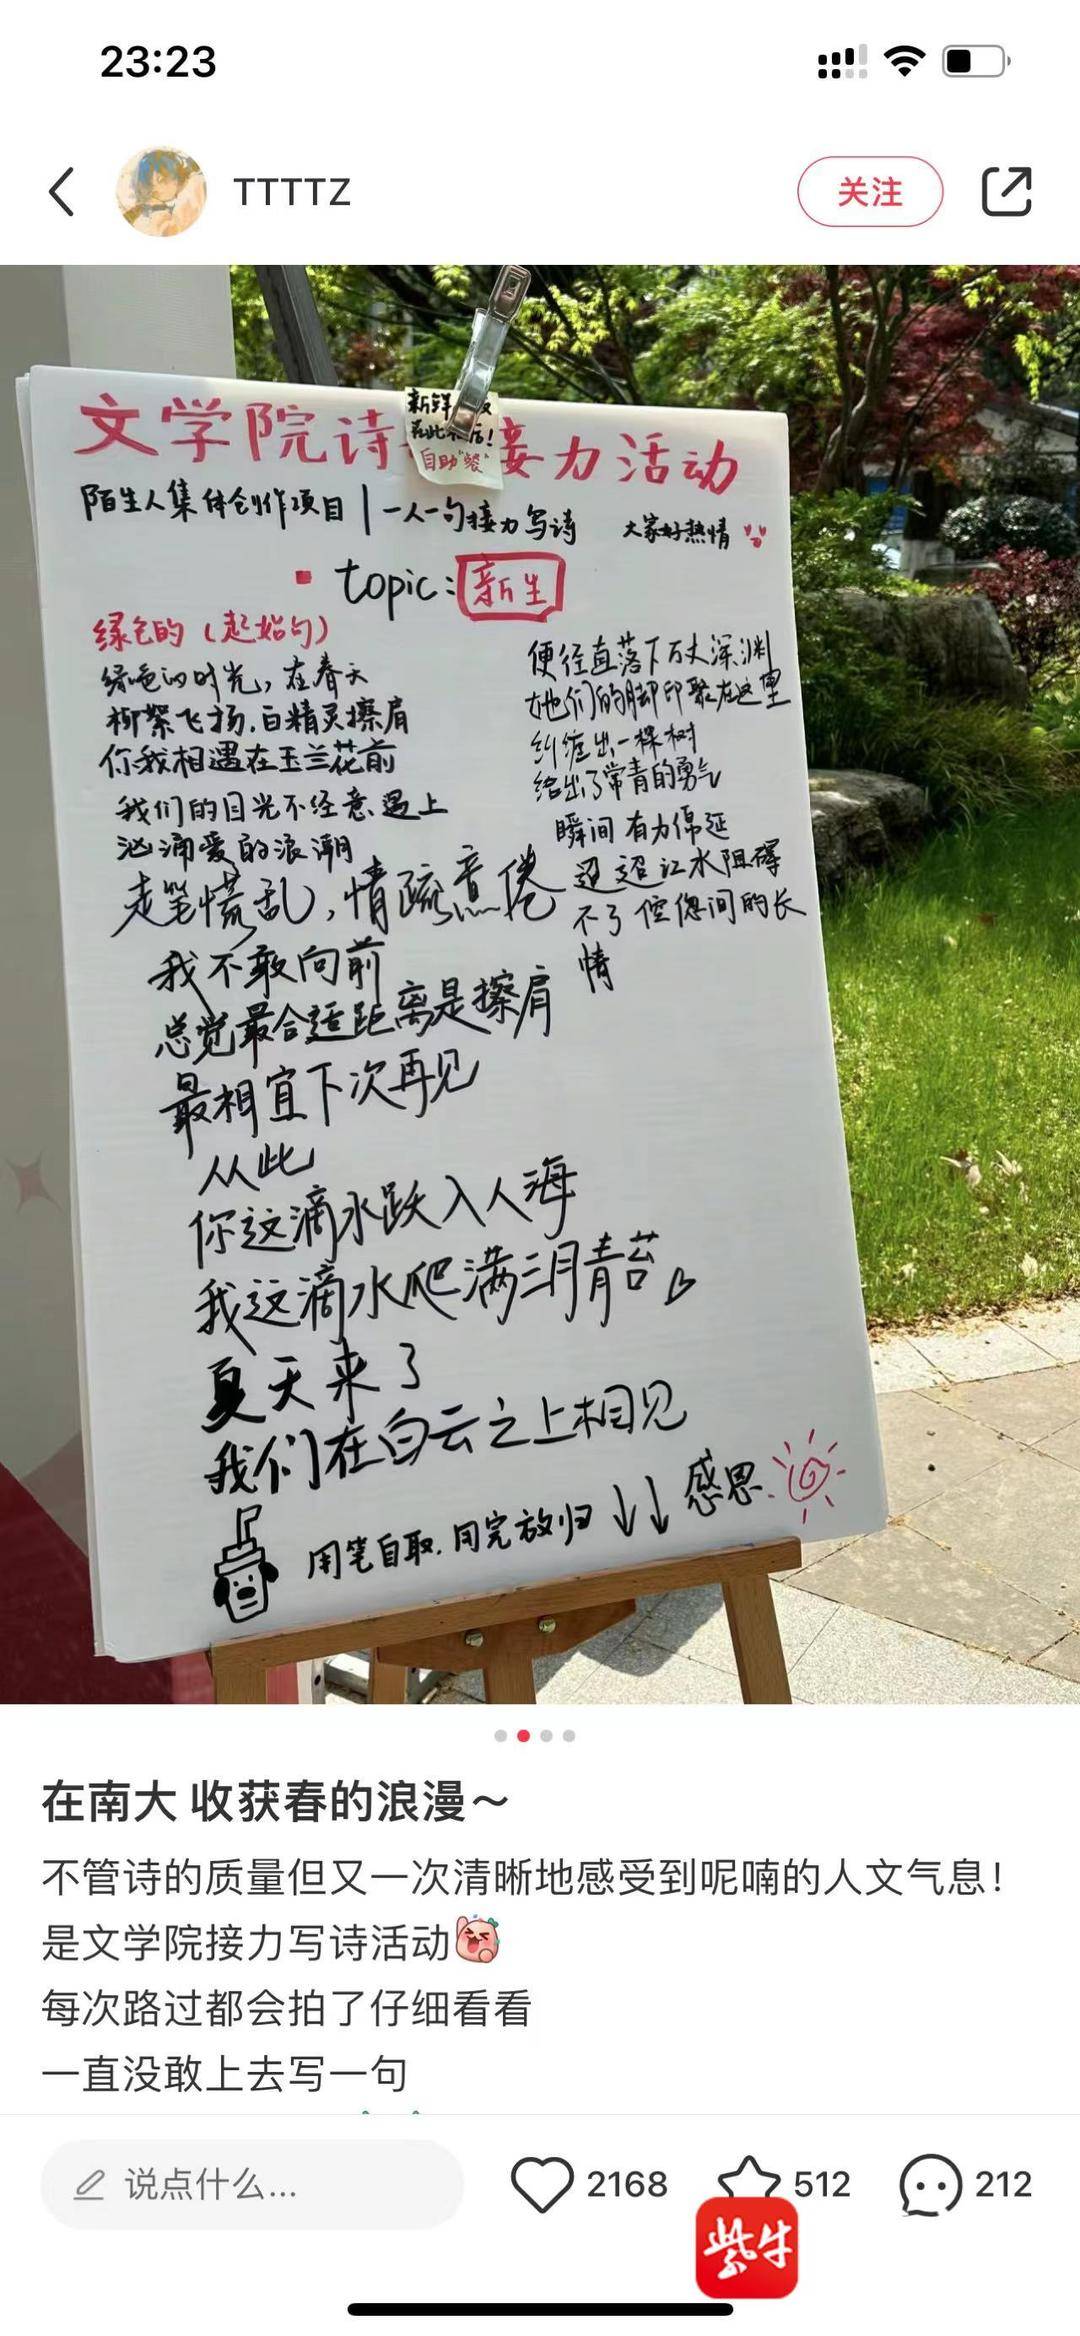 23:23
TTTTZ
关注
文学院诗接力活动
新鲜
自助
陌生人集体创作项目 | 一人一句接力写诗 大家好热情
topic: 新生
绿色的（起始句）
绿色的时光，在春天
柳絮飞扬，白精灵擦肩
你我相遇在玉兰花前
我们的目光不经意遇上
汹涌爱的浪潮
走笔慌乱，情疏意倦
我不敢向前
总觉最合适距离是擦肩
最相宜下次再见
从此
你这滴水跃入人海
我这滴水爬满三月青苔
夏天来了
我们在白云之上相见
便径直落下万丈深渊
她们的脚印聚在这里
纠缠出一棵树
给出了常青的勇气
瞬间有力绵延
迢迢江水阻碍
不了 偬间的长
情
用笔自取，用完放归 ↓↓ 感恩
在南大 收获春的浪漫～
不管诗的质量但又一次清晰地感受到呢喃的人文气息！
是文学院接力写诗活动
每次路过都会拍了仔细看看
一直没敢上去写一句
说点什么...
2168
512
212
紫牛